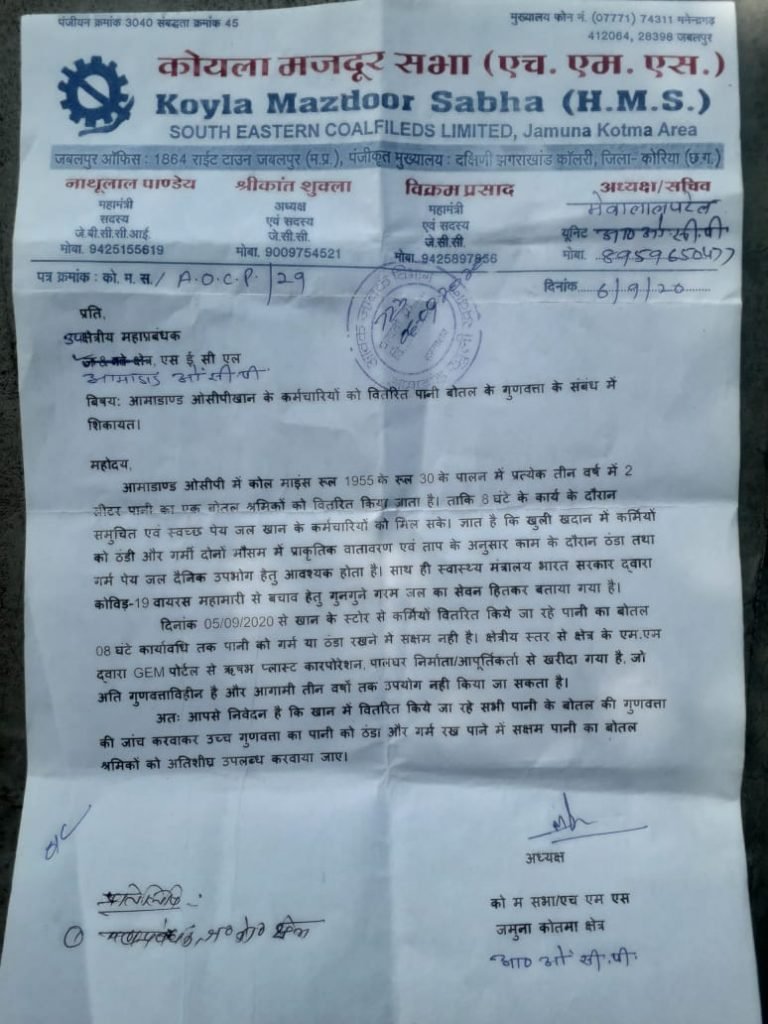 पंजीयन क्रमांक 3040 संबद्धता क्रमांक 45
मुख्यालय फोन नं. (07771) 74311 मनेन्द्रगढ़
412064, 28398 जबलपुर
कोयला मजदूर सभा (एच. एम. एस.)
Koyla Mazdoor Sabha (H.M.S.)
SOUTH EASTERN COALFILEDS LIMITED, Jamuna Kotma Area
जबलपुर ऑफिस : 1864 राईट टाउन जबलपुर (म.प्र.), पंजीकृत मुख्यालय : दक्षिणी झगराखंड कॉलरी, जिला- कोरिया (छ.ग.)
नाथूलाल पाण्डेय
महामंत्री
सदस्य
जे.बी.सी.सी.आई.
मोबा. 9425155619
श्रीकांत शुक्ला
अध्यक्ष
एवं सदस्य
जे.सी.सी.
मोबा. 9009754521
विक्रम प्रसाद
महामंत्री
एवं सदस्य
जे.सी.सी
मोबा. 9425897856
अध्यक्ष/सचिव
मेवालाल पटेल
यूनिट आ0 ओ सी पी
मोबा. 8959650477
पत्र क्रमांक : को. म. स./ A.O.C.P./29
दिनांक 6/9/20
प्रति,
उपक्षेत्रीय महाप्रबंधक
क्षेत्र, एस ई सी एल
आमाडांड ओ सी पी
बिषय: आमाडाण्ड ओसीपीखान के कर्मचारियों को वितरित पानी बोतल के गुणवत्ता के संबंध में
शिकायत।
महोदय,
आमाडाण्ड ओसीपी में कोल माइंस रूल 1955 के रूल 30 के पालन में प्रत्येक तीन वर्ष में 2
लीटर पानी का एक बोतल श्रमिकों को वितरित किया जाता है। ताकि 8 घंटे के कार्य के दौरान
समुचित एवं स्वच्छ पेय जल खान के कर्मचारियों को मिल सके। ज्ञात है कि खुली खदान में कर्मियों
को ठंडी और गर्मी दोनों मौसम में प्राकृतिक वातावरण एवं ताप के अनुसार काम के दौरान ठंडा तथा
गर्म पेय जल दैनिक उपभोग हेतु आवश्यक होता है। साथ ही स्वास्थ्य मंत्रालय भारत सरकार द्वारा
कोविड़-19 वायरस महामारी से बचाव हेतु गुनगुने गरम जल का सेवन हितकर बताया गया है।
दिनांक 05/09/2020 से खान के स्टोर से कर्मियों वितरित किये जा रहे पानी का बोतल
08 घंटे कार्यावधि तक पानी को गर्म या ठंडा रखने में सक्षम नही है। क्षेत्रीय स्तर से क्षेत्र के एम.एम
द्वारा GEM पोर्टल से ऋषभ प्लास्ट कारपोरेशन, पालघर निर्माता/आपूर्तिकर्ता से खरीदा गया है, जो
अति गुणवत्ताविहीन है और आगामी तीन वर्षो तक उपयोग नही किया जा सकता है।
अतः आपसे निवेदन है कि खान में वितरित किये जा रहे सभी पानी के बोतल की गुणवत्ता
की जांच करवाकर उच्च गुणवत्ता का पानी को ठंडा और गर्म रख पाने में सक्षम पानी का बोतल
श्रमिकों को अतिशीघ्र उपलब्ध करवाया जाए।
अध्यक्ष
को म सभा/एच एम एस
जमुना कोतमा क्षेत्र
आ0 ओ सी पी
प्रतिलिपि :-
① महाप्रबंधक, ज0 को0 क्षेत्र